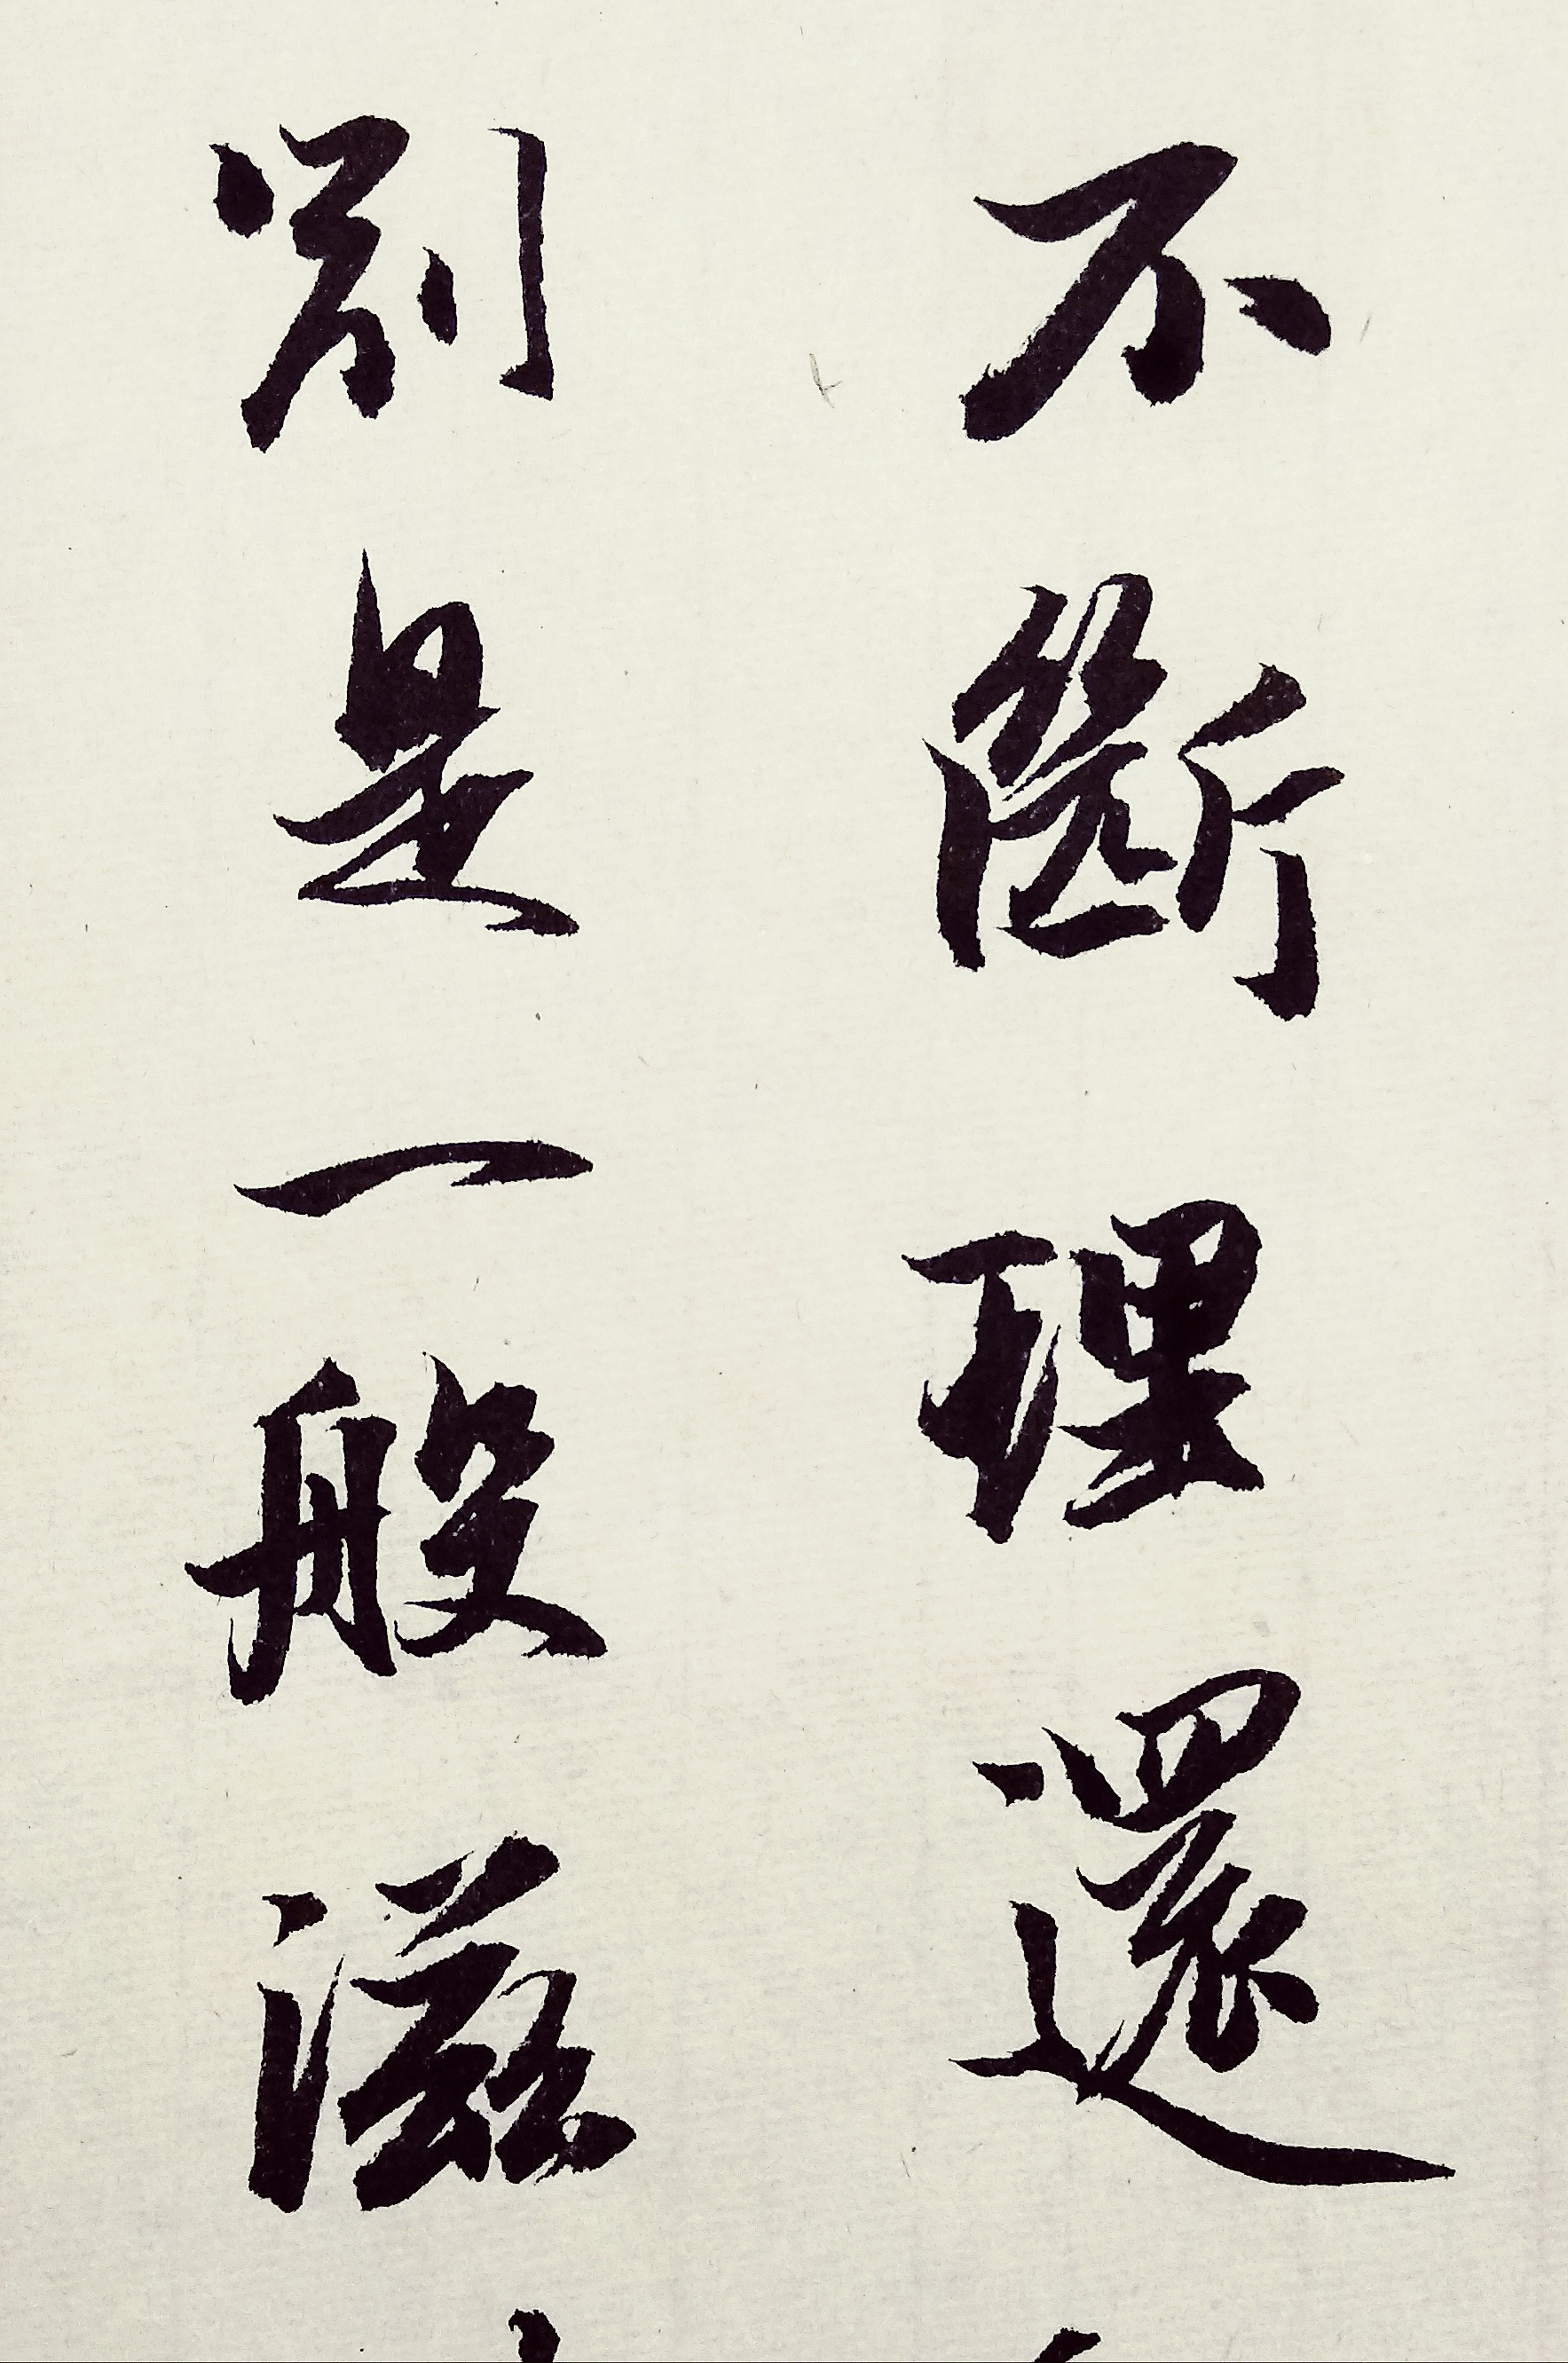 不斷理還
別是一般滋